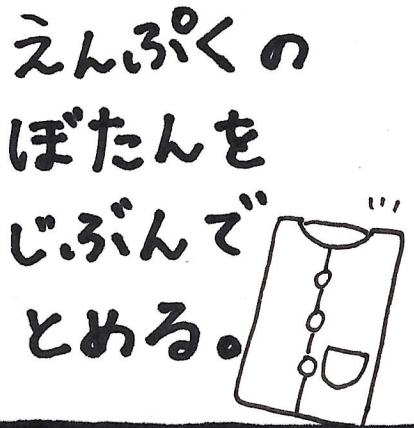 えんぷくの
ぼたんを
じぶんで
とめる。